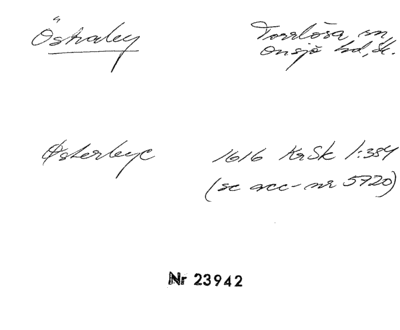 Östraby Torrlösa sn,
Onsjö hd, Sk.
Østerbye 1616 KrSk 1:384
(se acc-nr 5720)
Nr 23942